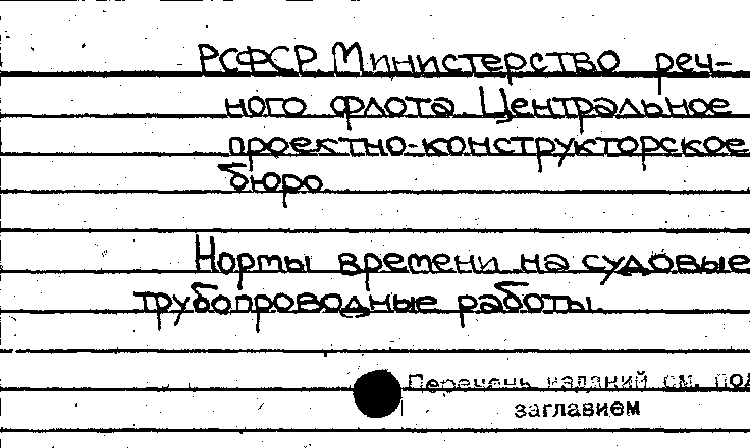 РСФСР. Министерство реч-
ного флота. Центральное
проектно-конструкторское
бюро.
Нормы времени на судовые
трубопроводные работы.
Перечень изданий см. под
заглавием